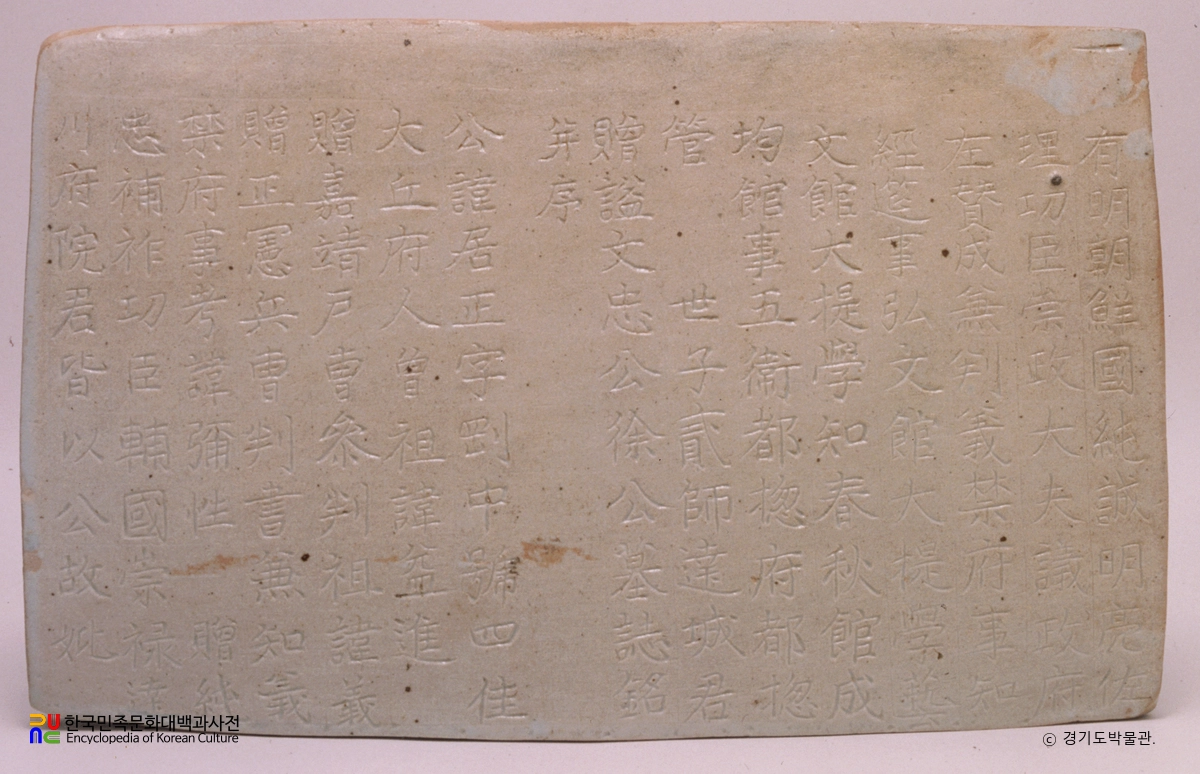 一
有明朝鮮國純誠明亮佐
理功臣崇政大夫議政府
左贊成兼判義禁府事知
經筵事弘文館大提學藝
文館大提學知春秋館成
均館事五衛都摠府都摠
管 世子貳師達城君
贈謚文忠公徐公墓誌銘
并序
公諱居正字剛中號四佳
大丘府人曾祖諱益進
贈嘉靖戶曹參判祖諱義
贈正憲兵曹判書兼知義
禁府事考諱彌性 贈純
忠補祚功臣輔國崇祿達
川府院君皆以公故妣
한국민족문화대백과사전
Encyclopedia of Korean Culture
ⓒ 경기도박물관.